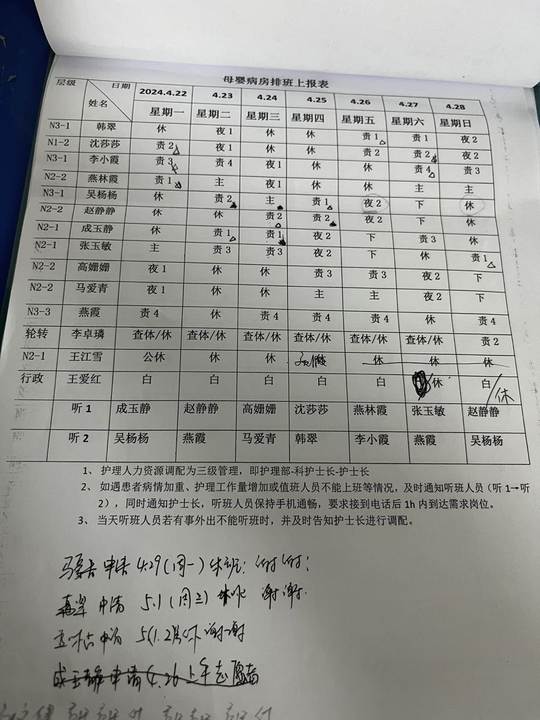 母婴病房排班上报表
层级 姓名 日期 2024.4.22 4.23 4.24 4.25 4.26 4.27 4.28
星期一 星期二 星期三 星期四 星期五 星期六 星期日
N3-1 韩翠 休 夜1 休 休 责1 责1 夜2
N1-2 沈莎莎 责2 夜1 休 休 责2 责2 夜2
N3-1 李小霞 责3 责4 夜1 休 休 责4 责3
N2-2 燕林霞 责1 主 夜1 休 休 主 主
N3-1 吴杨杨 休 责2 主 责1 夜2 下 休
N2-2 赵静静 休 休 责2 责2 夜2 下 休
N2-1 成玉静 休 责1 责1 夜2 下 责3 休
N2-1 张玉敏 主 责3 责3 夜2 下 休 责1
N2-2 高姗姗 夜1 休 休 责3 责3 夜2 下
N2-2 马爱青 夜1 休 休 主 主 夜2 下
N3-3 燕霞 责4 休 责4 责4 责4 休 责4
轮转 李卓璘 查体/休 查体/休 查体/休 查体/休 查体/休 查体/休 责2
N2-1 王江雪 公休 休 休 休 休 休
行政 王爱红 白 白 白 白 白 休 白/休
听1 成玉静 赵静静 高姗姗 沈莎莎 燕林霞 张玉敏 赵静静
听2 吴杨杨 燕霞 马爱青 韩翠 李小霞 燕霞 吴杨杨
1、 护理人力资源调配为三级管理，即护理部-科护士长-护士长
2、 如遇患者病情加重、护理工作量增加或值班人员不能上班等情况，及时通知听班人员（听1→听
2），同时通知护士长，听班人员保持手机通畅，要求接到电话后1h内到达需求岗位。
3、 当天听班人员若有事外出不能听班时，并及时告知护士长进行调配。
申请 4.29(周一) 休班 谢谢
申请 5.1(周三) 休 谢谢
申请 5.1.2 休 谢谢
成玉静申请 4.26 上午